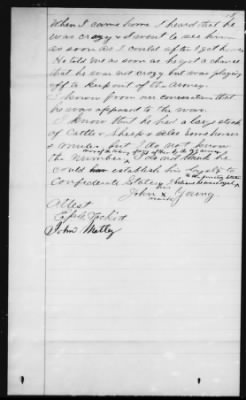 When I came home I heard that he
was crazy & I went to see him
as soon as I could after I got home
He told me as soon as he got a chance
that he was not crazy but was playing
off to keep out of the Army.
I know from our conversation that
he was opposed to the war.
I know that he had a large stock
of Cattle Sheep & also some horses
& mules but I do not know
the number I do not think he
could establish his loyalty to
Confederate States
his
John x Young
mark
Attest
John Motley